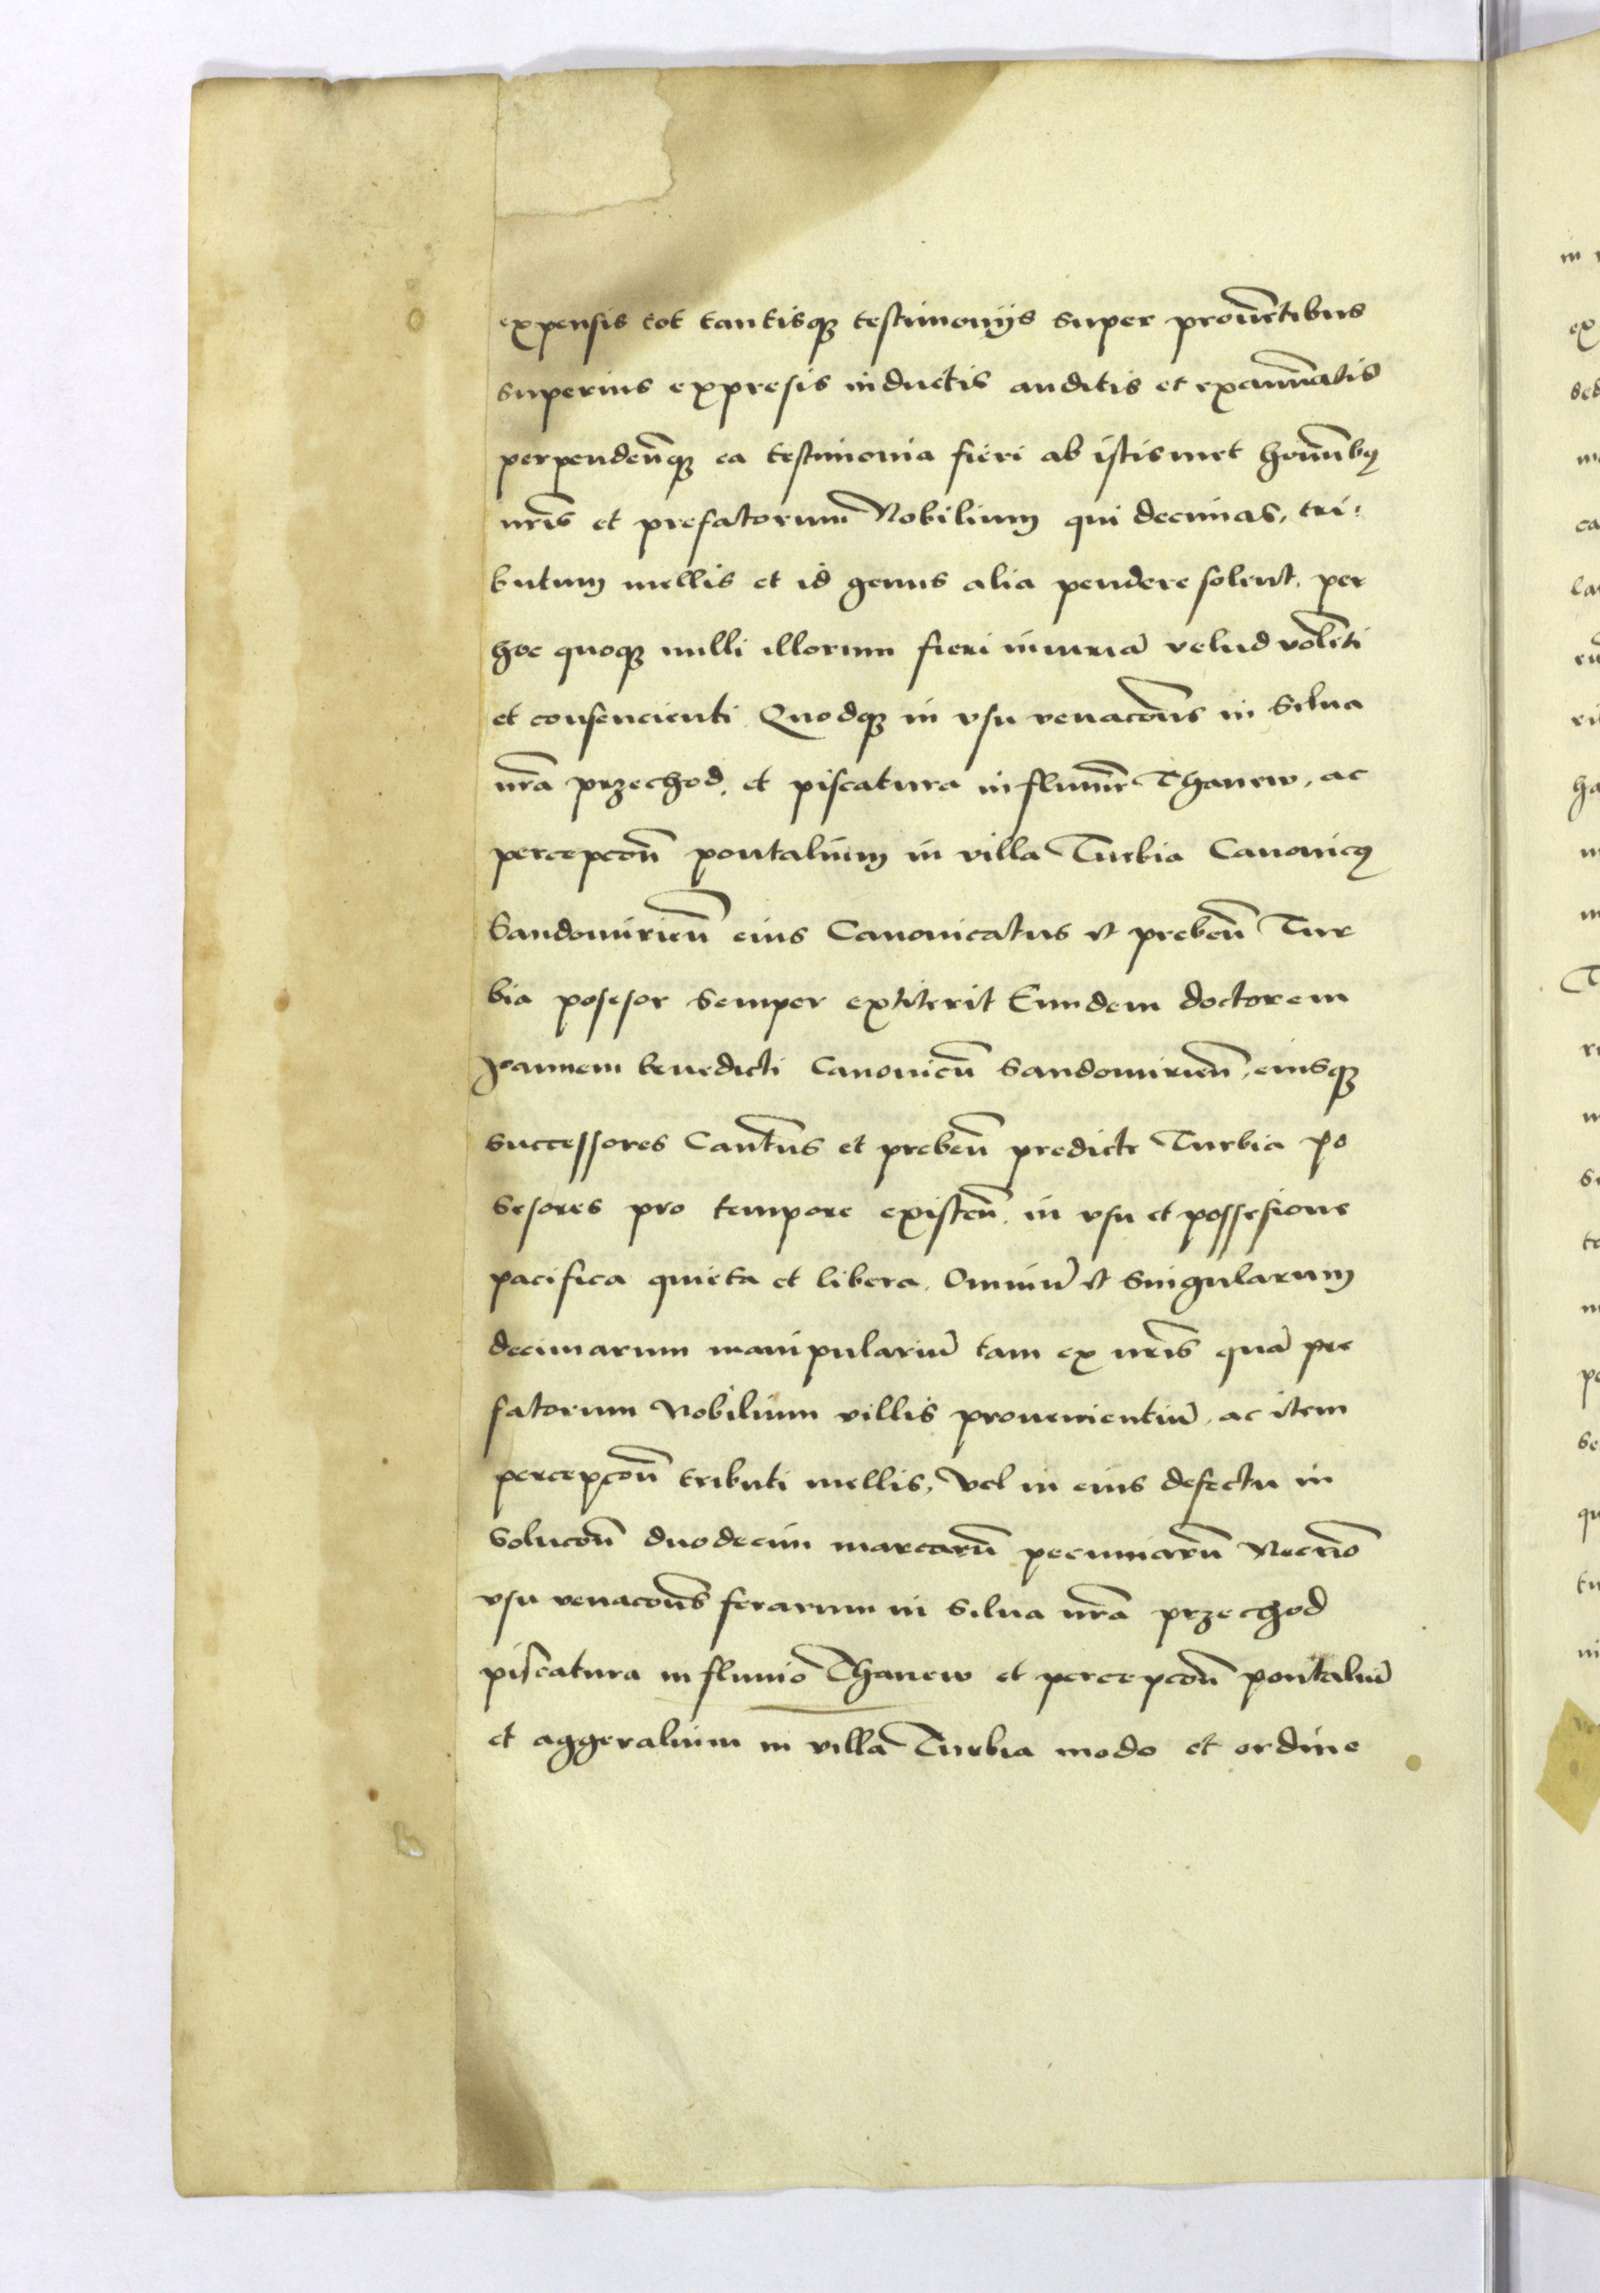 expensis tot tantisqꝫ testimonijs super prouētibus
superius expresis inductis auditis et examīatis
perpendeñqꝫ ea testimonia fieri ab istismet homībꝯ
nr̄is et prefatorum Nobilium qui decimas, tri-
butum mellis et id genus alia pendere solent, per
hoc quoqꝫ nulli illorum fieri iniuriā velud volēti
et consencienti. Quodqꝫ in vsu venacōis in silua
nr̄a przechod, et piscatura in fluuīe Thanew, ac
percepcōn̄ pontalium in villa Turbia Canonicꝯ
Sandomirien̄ eius Canonicatus et preben̄ Tur
bia posesor semper extiterit Eundem doctorem
Joannem benedicti Canonicū Sandomirien̄, eiusqꝫ
successores Can̄tus et preben̄ predicte Turbia po
sesores pro tempore existen̄. in vsu et possesione
pacifica quieta et libera. Omniū et singularum
decimarum manipulariū tam ex nr̄is quā pre
fatorum Nobilium villis prouenientiū, ac item
percepcōn̄ tributi mellis, vel in eius defectu in
solucōn̄ duodecim marcarū pecuniarū Necnō
vsu venacōis ferarum in silua nr̄a przechod
piscatura in fluuio Thanew et percepcōn̄ pontaliū
et aggeralium in villa Turbia modo et ordine